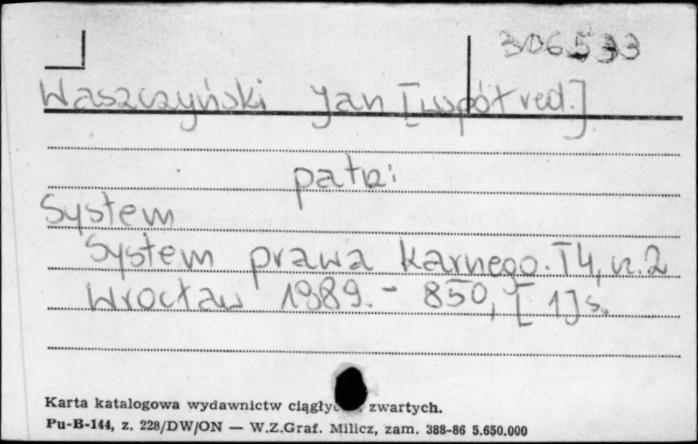 306533
Waszczyński Jan [współred.]
patrz:
System
System prawa karnego. T4, cz.2
Wrocław 1989. - 850, [1] s.
Karta katalogowa wydawnictw ciągłych zwartych.
Pu-B-144, z. 228/DW/ON — W.Z.Graf. Milicz, zam. 388-86 5.650.000